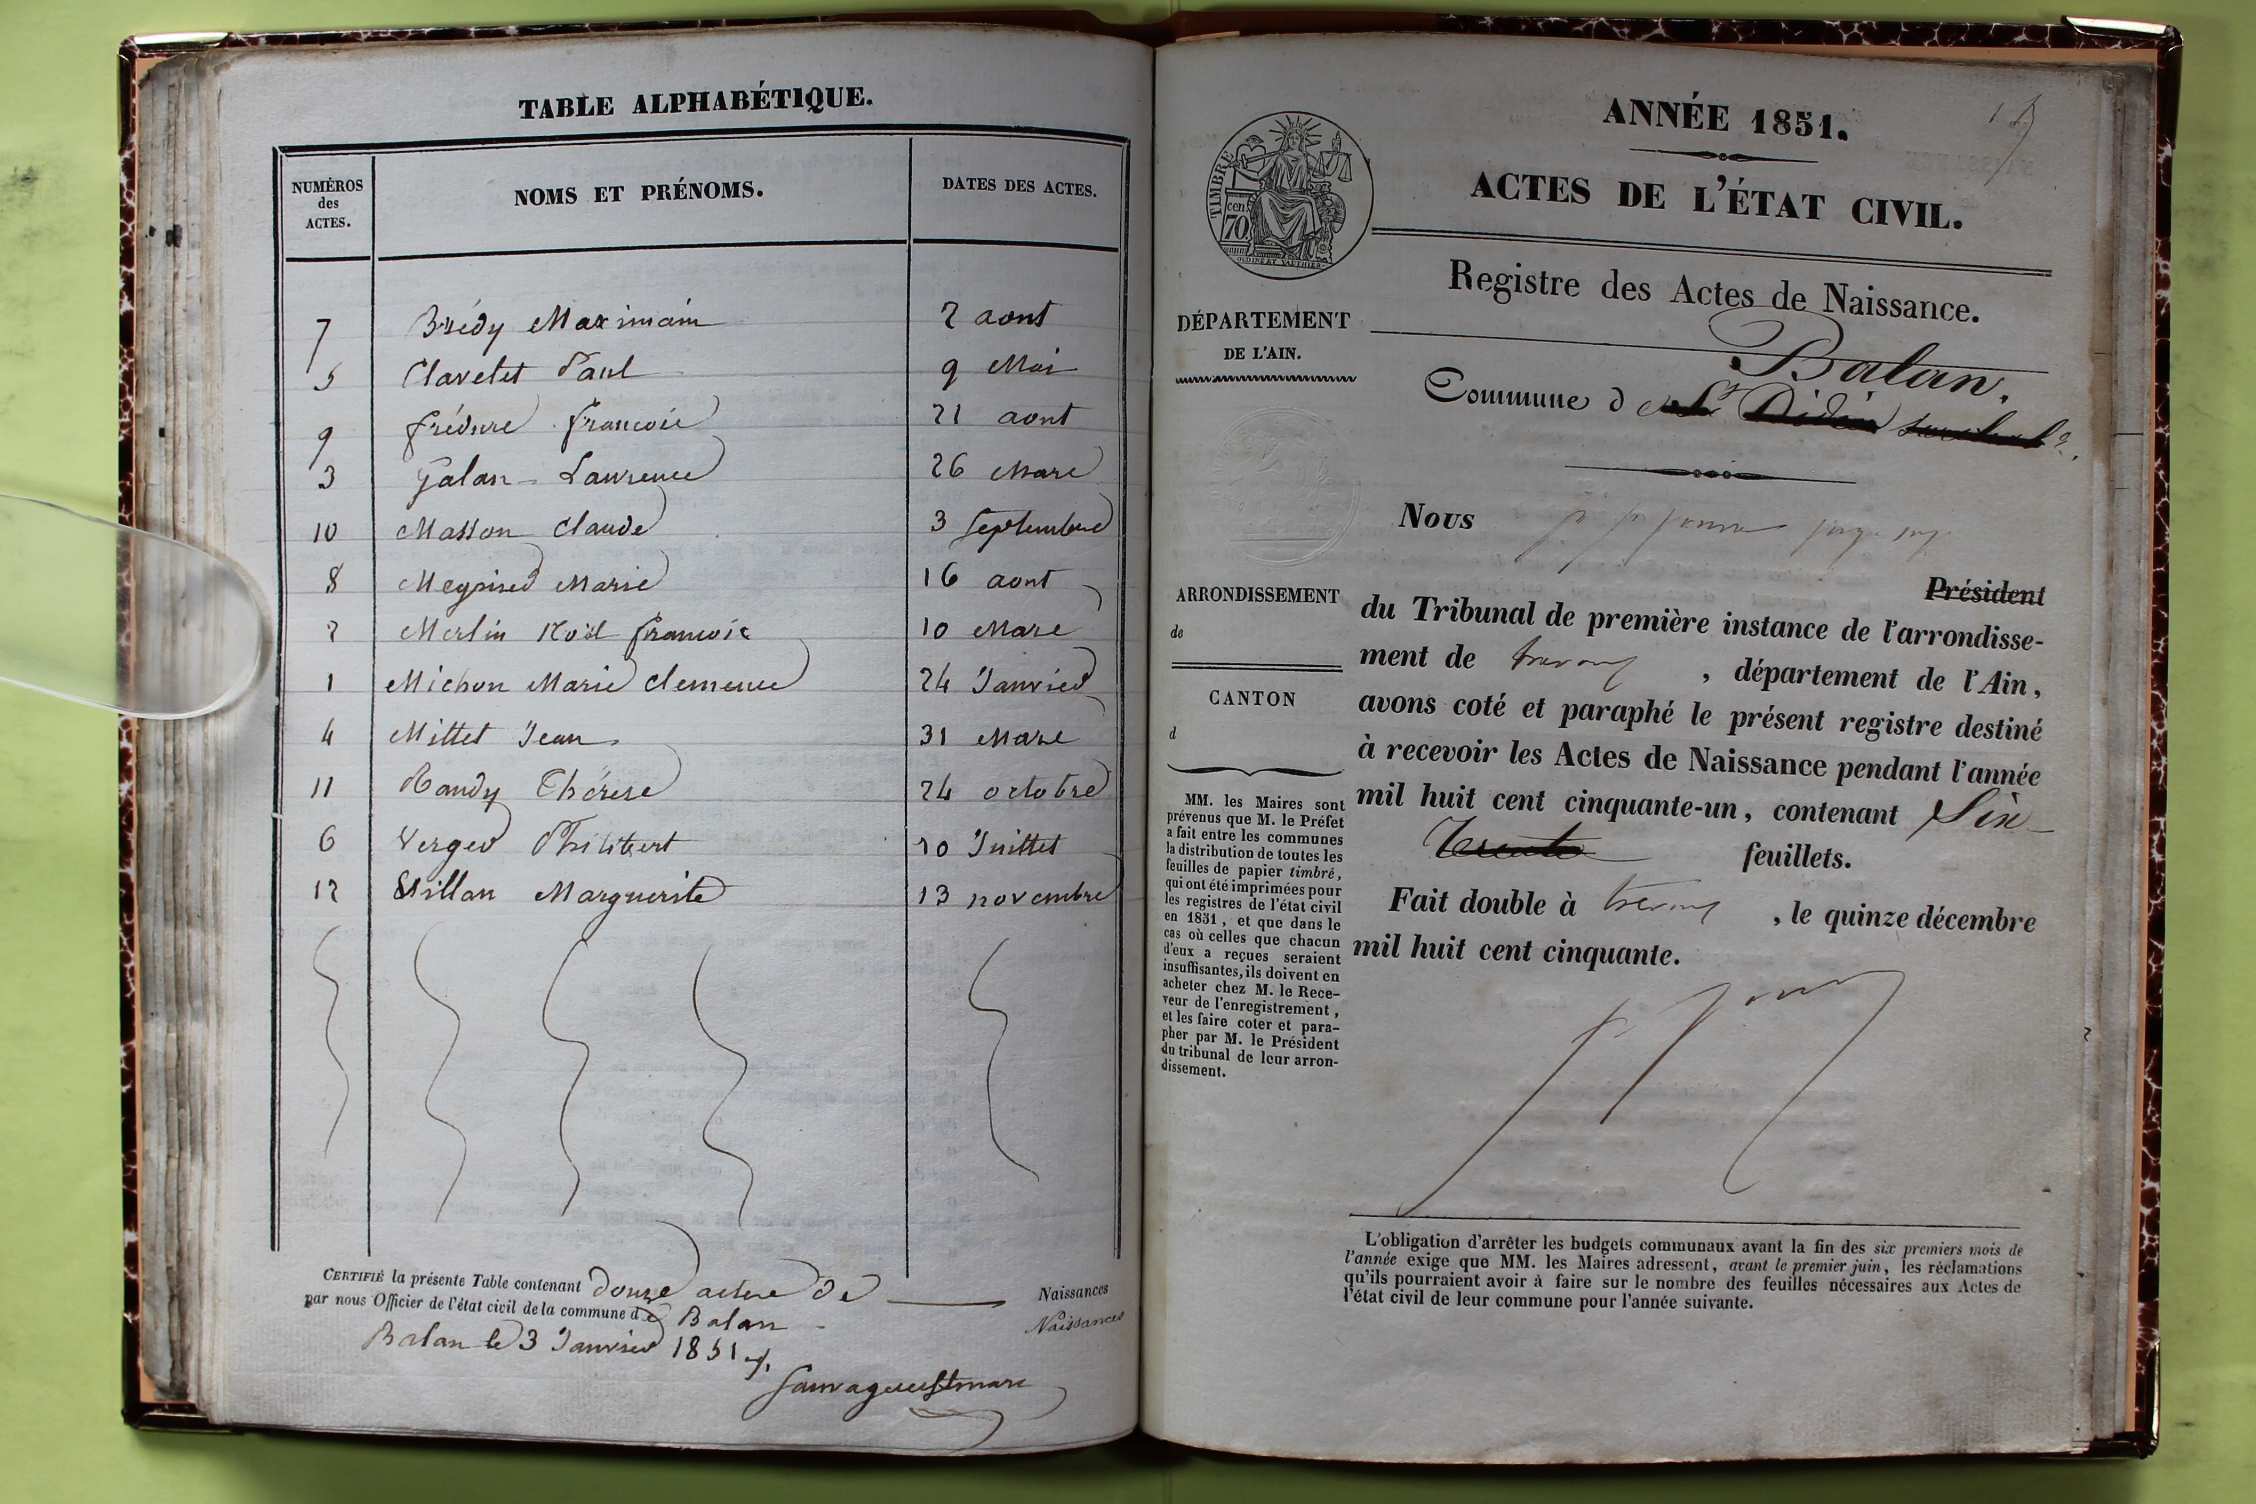 TABLE ALPHABÉTIQUE.
NUMÉROS des ACTES.
NOMS ET PRÉNOMS.
DATES DES ACTES.
7 Brédy Maximin 2 aout
5 Clavelet Paul 9 Mai
9 frédure françois 21 aout
3 Galan Laurence 26 Mars
10 Masson Claude 3 Septembre
8 Marie 16 aout
2 Merlin Noël françois 10 Mars
1 Michon Marie Clemence 24 Janvier
4 Mittet Jean 31 Mars
11 Randy Thérese 24 octobre
6 Verger Philibert 10 Juillet
12 Villan Marguerite 13 novembre
CERTIFIÉ la présente Table contenant douze actes de Naissances
par nous Officier de l'état civil de la commune de Balan Naissances
Balan le 3 Janvier 1851
ANNÉE 1851.
ACTES DE L'ÉTAT CIVIL.
TIMBRE
70 cen
Registre des Actes de Naissance.
DÉPARTEMENT
DE L'AIN.
Balan.
Commune d St Didier
Nous
ARRONDISSEMENT
de
CANTON
d
MM. les Maires sont
prévenus que M. le Préfet
a fait entre les communes
la distribution de toutes les
feuilles de papier timbré,
qui ont été imprimées pour
les registres de l'état civil
en 1851, et que dans le
cas où celles que chacun
d'eux a reçues seraient
insuffisantes, ils doivent en
acheter chez M. le Rece-
veur de l'enregistrement,
et les faire coter et para-
pher par M. le Président
du tribunal de leur arron-
dissement.
Président
du Tribunal de première instance de l'arrondisse-
ment de trevoux, département de l'Ain,
avons coté et paraphé le présent registre destiné
à recevoir les Actes de Naissance pendant l'année
mil huit cent cinquante-un, contenant Six
Trente feuillets.
Fait double à trevoux, le quinze décembre
mil huit cent cinquante.
L'obligation d'arrêter les budgets communaux avant la fin des six premiers mois de
l'année exige que MM. les Maires adressent, avant le premier juin, les réclamations
qu'ils pourraient avoir à faire sur le nombre des feuilles nécessaires aux Actes de
l'état civil de leur commune pour l'année suivante.